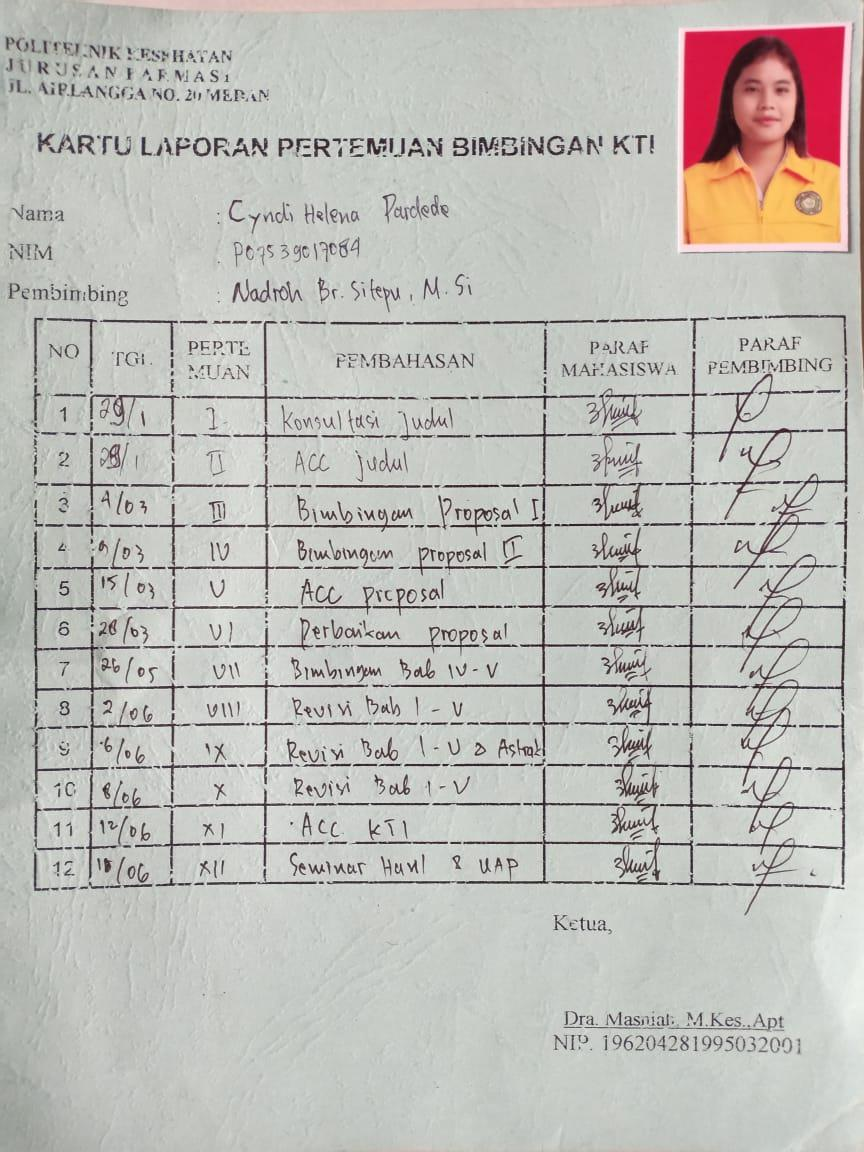 POLITEKNIK KESEHATAN
JURUSAN FARMASI
JL. AIRLANGGA NO. 20 MEDAN
KARTU LAPORAN PERTEMUAN BIMBINGAN KTI
Nama : Cyndi Helena Pardede
NIM : P07539017084
Pembimbing : Nadroh Br. Sitepu, M.Si
NO TGL PERTEMUAN PEMBAHASAN PARAF MAHASISWA PARAF PEMBIMBING
1 29/1 I Konsultasi judul
2 I ACC judul
3 4/03 III Bimbingan Proposal I
4 9/03 IV Bimbingan proposal II
5 15/03 V ACC proposal
6 28/03 VI Perbaikan proposal
7 26/05 VII Bimbingan Bab IV-V
8 2/06 VIII Revisi Bab I-V
9 6/06 IX Revisi Bab I-V & Astrak
10 8/06 X Revisi Bab I-V
11 12/06 XI ACC KTI
12 /06 XII Seminar Hasil & UAP
Ketua,
Dra. Masniah, M.Kes.,Apt
NIP. 196204281995032001